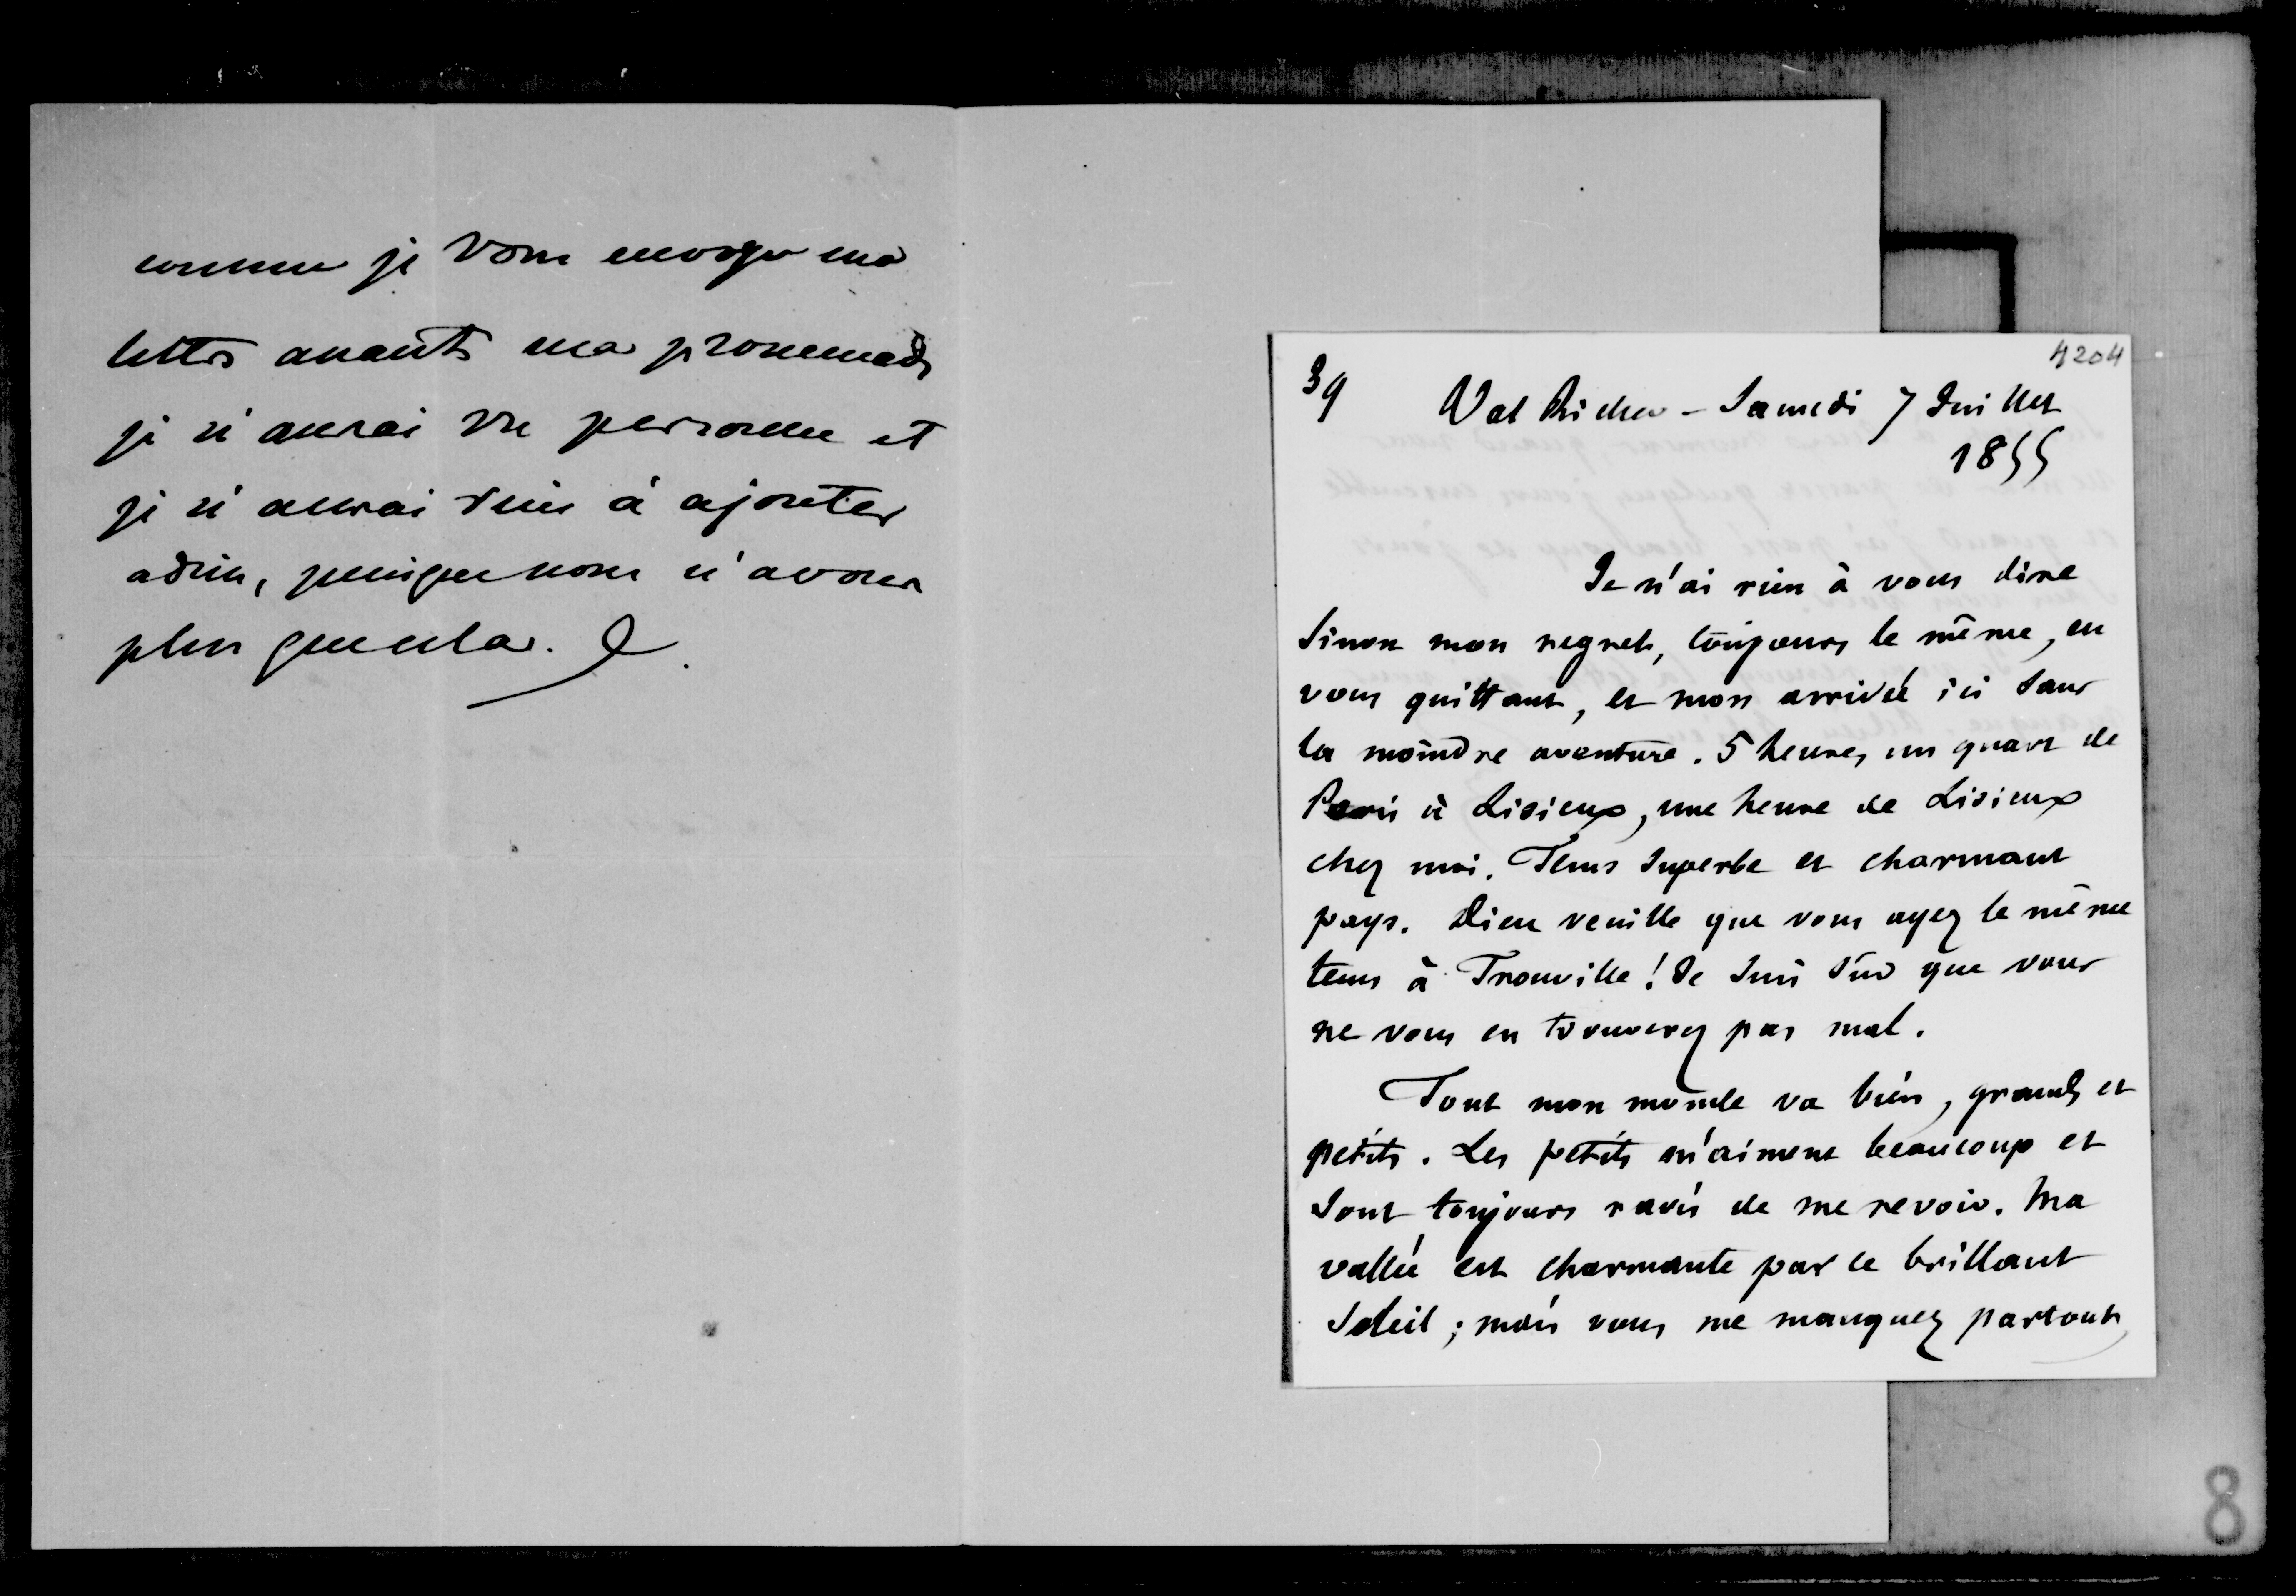 comme je vous envoye ma
lettre avant ma promenade
je n'aurai vu personne et
je n'aurai rien à ajouter
adieu, puisque nous n'avons
plus que cela.
4204
39 Val Richer - Samedi 7 Juillet
1855
Je n'ai rien à vous dire
Sinon mon regret, toujours le même, en
vous quittant, et mon arrivée ici sans
la moindre aventure. 5 heures un quart de
Paris à Lisieux, une heure de Lisieux
chez moi. Tems superbe et charmant
pays. Dieu veuille que vous ayez le même
tems à Trouville ! Je suis sûr que vous
ne vous en trouverez pas mal.
Tout mon monde va bien, grands et
petits. Les petits m'aiment beaucoup et
sont toujours ravis de me revoir. Ma
vallée est charmante par ce brillant
Soleil ; mais vous me manquez partout,
8